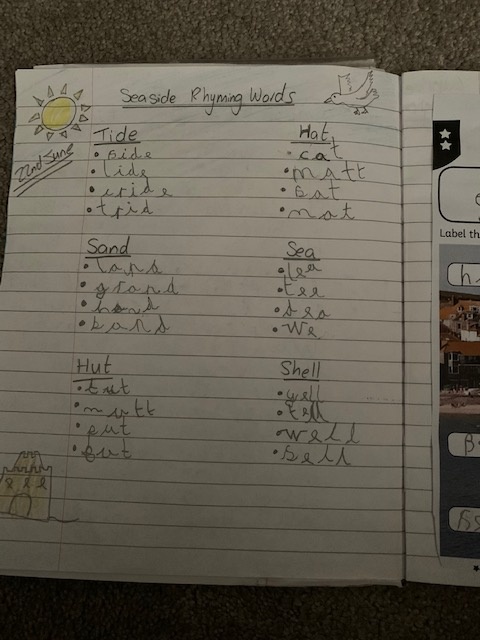 Seaside Rhyming Words
22nd June
Tide
• side
• lide
• cride
• trid
Hat
• cat
• matt
• bat
• nat
Sand
• land
• grand
• hand
• band
Sea
• lea
• tee
• we
Hut
• tut
• mutt
• put
• but
Shell
• yell
• tell
• well
• bell
Label th